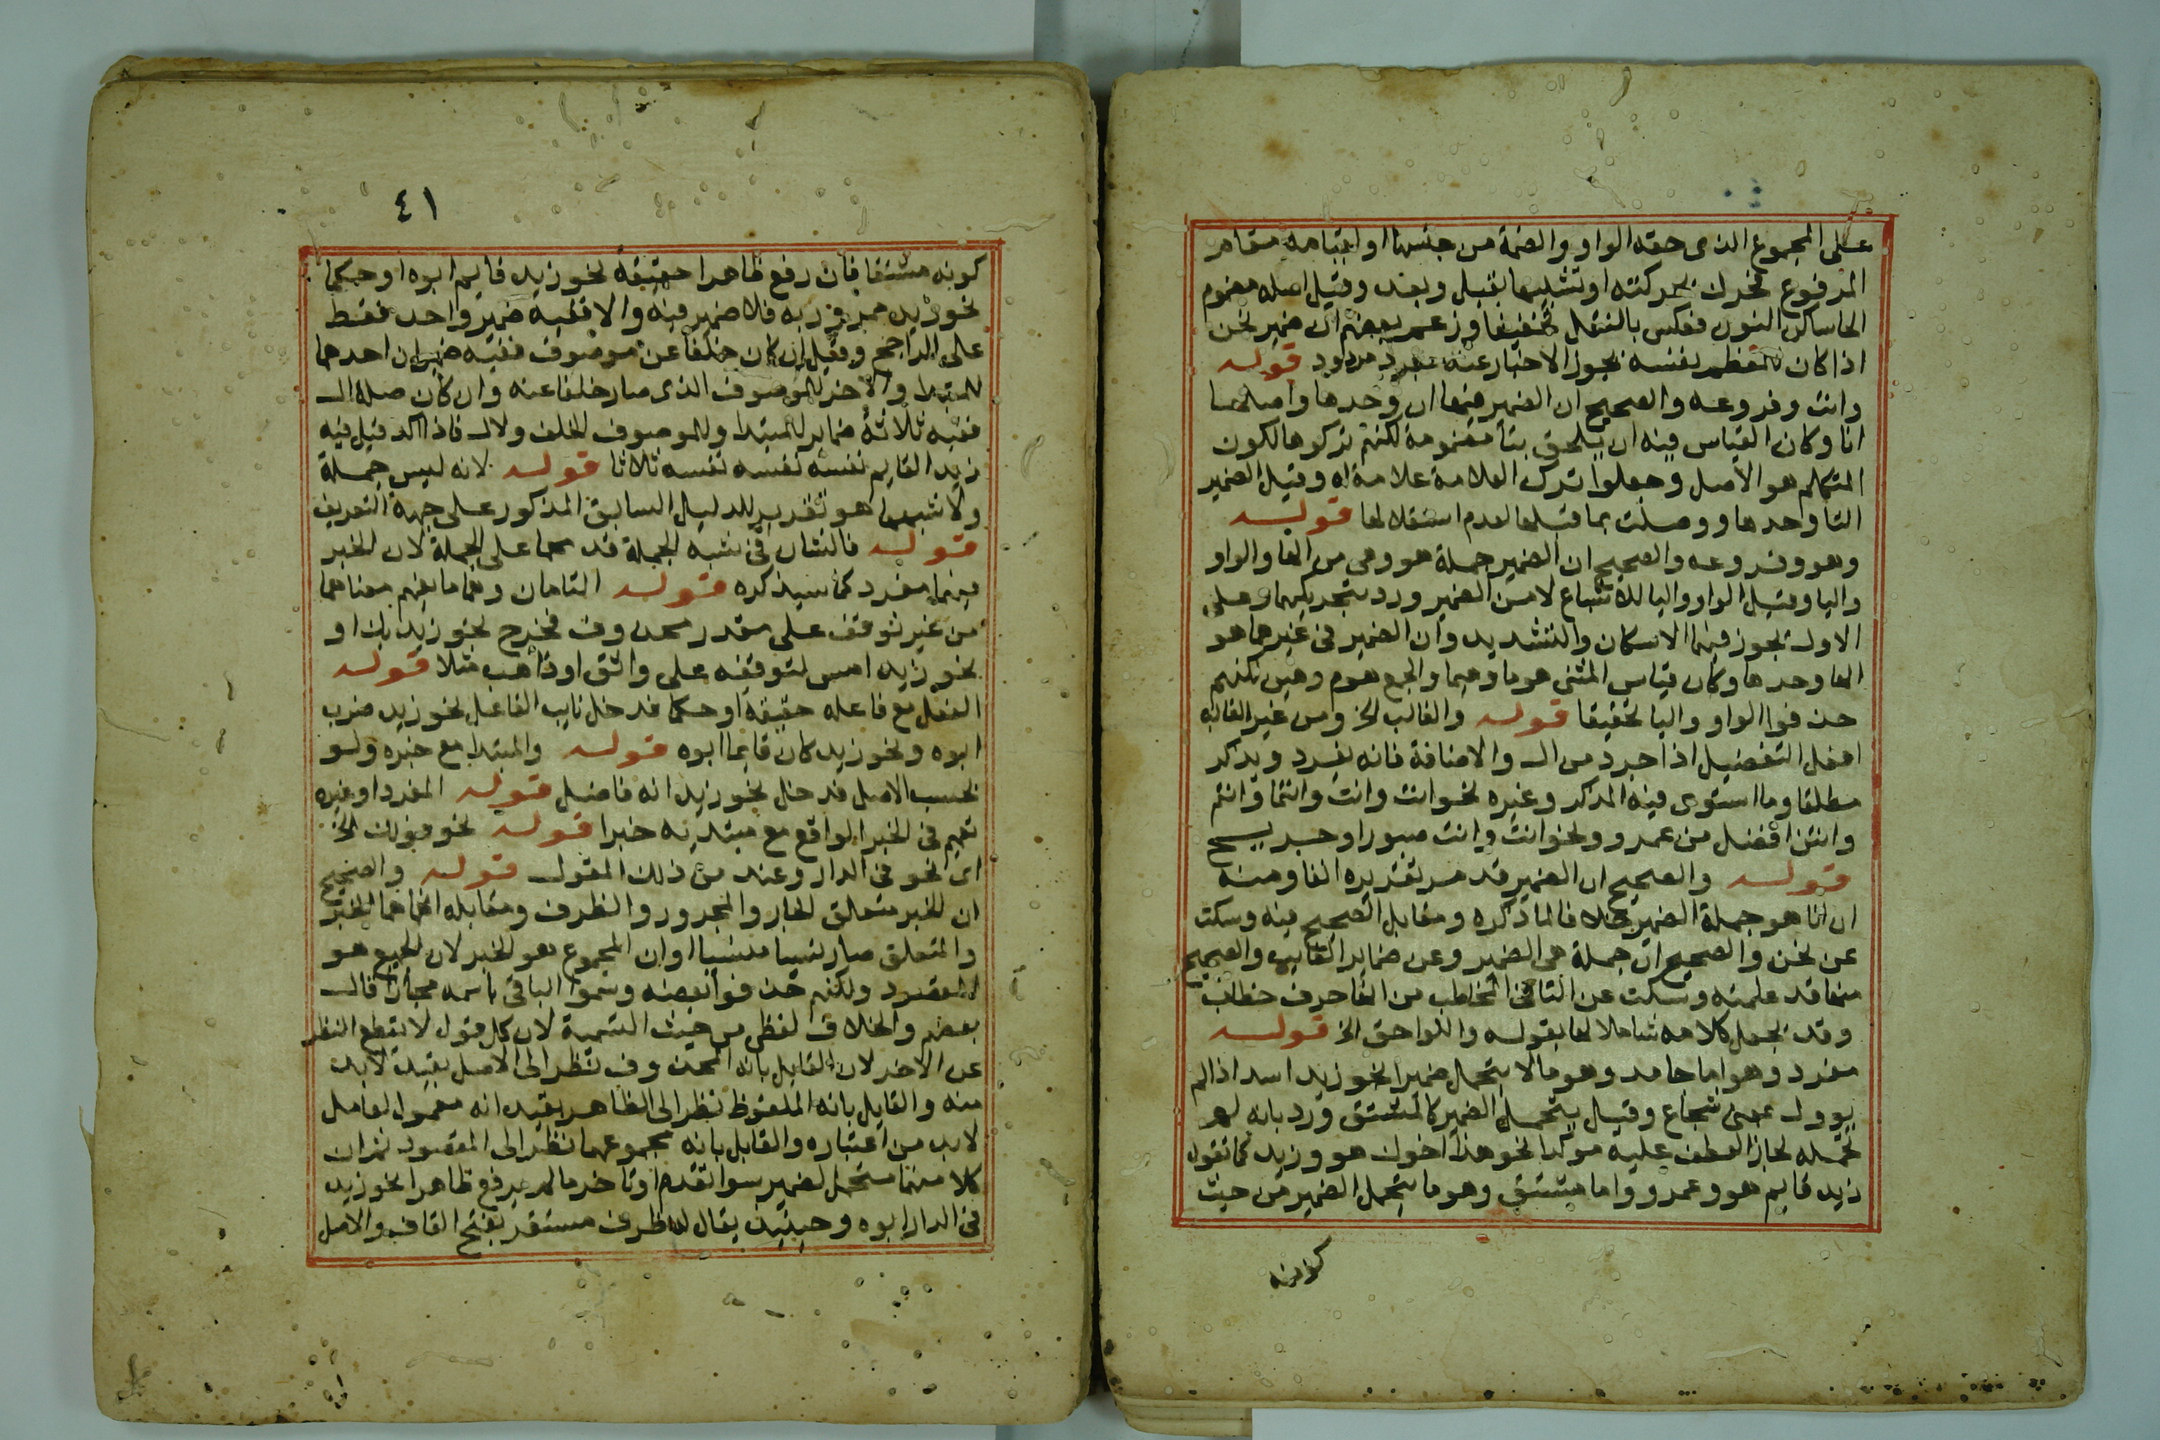 على المجموع الذى حقه الواو والضمة من جنسها او لقيامه مقام
المرفوع فحرك بحركته او تشبيها بقبل وبعد وقيل اصله بضم
الحا ساكن النون فعكس بالنقل تخفيفا وزعم بعضهم ان ضمير نحن
اذا كان للمعظم نفسه يجوز الاخبار عنه بمفرد مردود قوله
وانت وفروعه والصحيح ان الضمير فيها ان وحدها واصلها
انا وكان القياس فيه ان يلحق بتا مضمومة لكنهم تركوها لكون
المتكلم هو الاصل وجعلوا ترك العلامة علامة له وقيل الضمير
التا وحدها ووصلت بما قبلها لعدم استقلالها قوله
وهو وفروعه والصحيح ان الضمير جملة هو وهى من الها والواو
واليا وقيل الواو واليا للاشباع لا من الضمير ورد بتحريكهما وعلى
الاول يجوز فيهما الاسكان والتشديد وان الضمير فى غيرهما هو
الها وحدها وكان قياس المثنى هوما وهيما والجمع هوم وهين لكنهم
حذفوا الواو واليا تخفيفا قوله والغالب الخ ومن غير الغالب
افعل التفضيل اذا جرد من ال والاضافة فانه يفرد ويذكر
مطلقا وما استوى فيه المذكر وغيره نحو انت وانت وانتما وانتم
وانتن افضل من عمرو ونحو انت وانت صبور او جريح
قوله والصحيح ان الضمير قد مر تقديره الفا ومنه
ان انا هو جملة الضمير خلافا لما ذكره ومقابل الصحيح فيه وسكت
عن نحن والصحيح ان جملة هى الضمير وعن ضماير الغايب والصحيح
منها قد علمته وسكت عن التا فى المخاطب من انها حرف خطاب
وقد يجعل كلامه شاملا لها بقوله واللواحق الخ قوله
مفرد وهو اما جامد وهو ما لا يتحمل ضميرا نحو زيد اسد اذا لم
يوول بمعنى شجاع وقيل يتحمل الضمير كالمشتق ورد بانه لو
تحمله لجاز العطف عليه موكدا نحو هذا اخوك هو وزيد كما تقول
زيد قايم هو وعمرو واما مشتق وهو ما يتحمل الضمير من حيث
كونه
٤١
كونه مشتقا فان رفع ظاهرا حقيقة نحو زيد قايم ابوه او حكما
نحو زيد ممرور به فلا ضمير فيه والا ففيه ضمير واحد فقط
على الراجح وقيل ان كان خلفا عن موصوف ففيه ضميران احدهما
للمبتدا والاخر للموصوف الذى صار خلفا عنه وان كان صلة ال
ففيه ثلاثة ضماير للمبتدا وللموصوف الخلف ولال فاذا اكد قيل فيه
زيد القايم نفسه نفسه نفسه ثلاثا قوله لانه ليس جملة
ولا شبهها هو تقدير للدليل السابق المذكور على جهة التعريف
قوله فالشان فى شبه الجملة قدمها على الجملة لان الخبر
فيهما مفرد كما سيذكره قوله التامان وهما ما يفهم معناهما
من غير توقف على مقدر محذوف فخرج نحو زيد بك او
نحو زيد امس لتوقفه على واثق او ذاهب مثلا قوله
الفعل مع فاعله حقيقة او حكما فدخل نايب الفاعل نحو زيد ضرب
ابوه ونحو زيد كان قايما ابوه قوله والمبتدا مع خبره ولو
بحسب الاصل فدخل نحو زيد انه فاضل قوله المفرد او غيره
تعميم فى الخبر الواقع مع مبتديه خبرا قوله نحو قولك الخ
اى نحو فى الدار وعندك من ذلك المقول قوله والصحيح
ان الخبر متعلق الجار والمجرور والظرف ومقابله انهما هما الخبر
والمتعلق صار نسيا منسيا او ان المجموع هو الخبر لان الجميع هو
المقصود ولكنهم حذفوا بعضه وسموا الباقى باسمه مجازا قال
بعضهم والخلاف لفظى من حيث التسمية لان كل قول لا يقطع النظر
عن الاخر لان القايل بانه المحذوف نظر الى الاصل بقيد لابد
منه والقايل بانه الملفوظ نظر الى الظاهر بقيد انه معمول لعامل
لابد من اعتباره والقايل بانه مجموعهما نظر الى المقصود ثم ان
كلا منهما متحمل لضمير سوا تقدم او تاخر ما لم يرفع ظاهرا نحو زيد
فى الدار ابوه وحينيذ يقال له ظرف مستقر بفتح القاف والاصل